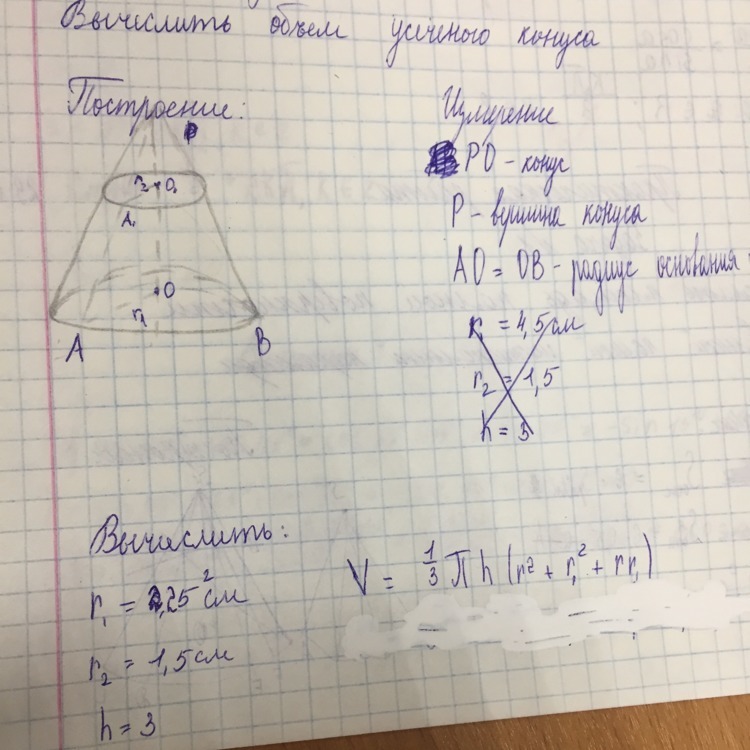 Вычеслить объем усеченого конуса
Построение:
P
r₂ O₁
A₁
O
r₁
A
B
Измерение
PO - конус
P - вершина конуса
AO = OB - радиус основания
r₁ = 4,5 см
r₂ = 1,5
h = 3
Вычислить:
r₁ = 2,25² см
r₂ = 1,5 см
h = 3
V = 1/3 П h (r² + r₁² + rr₁)